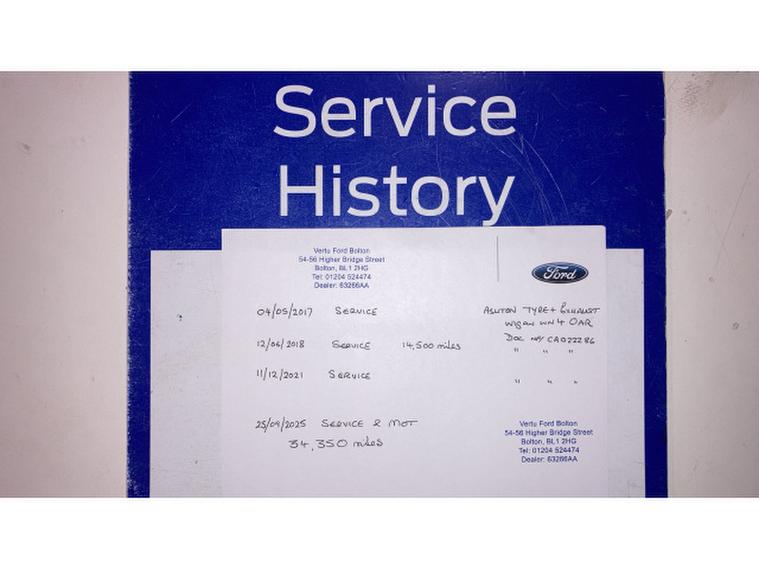 Service
History
Vertu Ford Bolton
54-56 Higher Bridge Street
Bolton, BL1 2HG
Tel: 01204 524474
Dealer: 63266AA
Ford
04/05/2017 SERVICE ASHTON TYRE + EXHAUST
WIGAN WN4 0AR
12/06/2018 SERVICE 14,500 miles DOC CA022286
" " "
11/12/2021 SERVICE " " "
25/09/2025 SERVICE & MOT
34,350 miles
Vertu Ford Bolton
54-56 Higher Bridge Street
Bolton, BL1 2HG
Tel: 01204 524474
Dealer: 63266AA